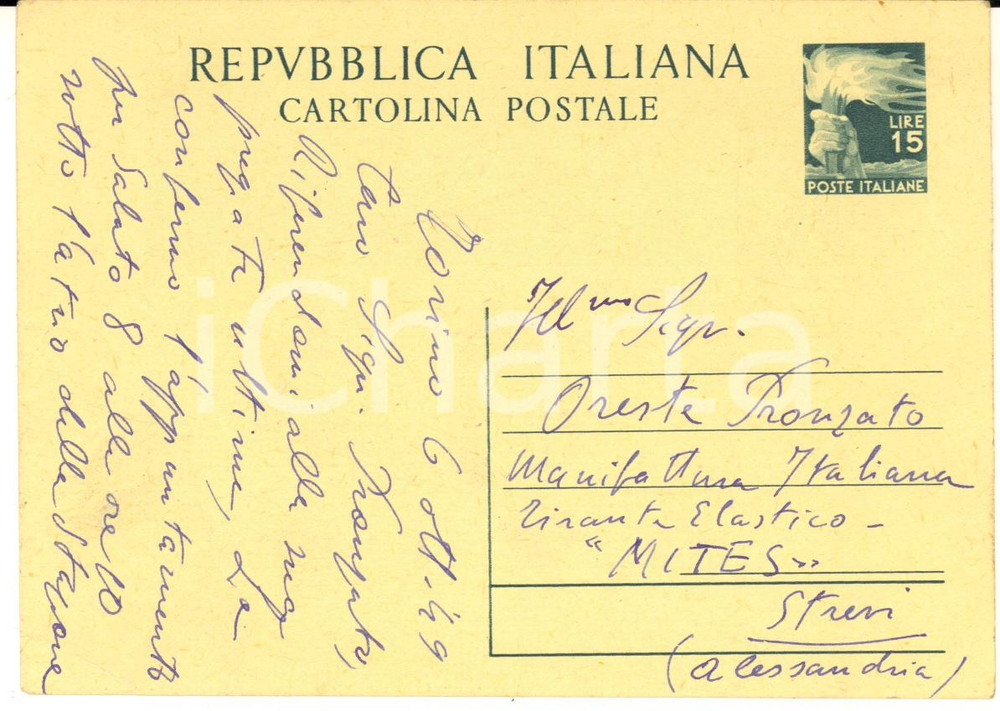 REPVBBLICA ITALIANA
CARTOLINA POSTALE
LIRE
15
POSTE ITALIANE
Torino 6 ott. 49
Caro Sign. Pronzato,
Riferendomi alla mia
pregate ultime, La
confermo l'appuntamento
per Sabato 8 alle ore 10
sotto l'atrio della Stazione
Ill.mo Sigr.
Oreste Pronzato
Manifattura Italiana
Tirante Elastico -
"MITES"
Strevi
(Alessandria)
iCharta